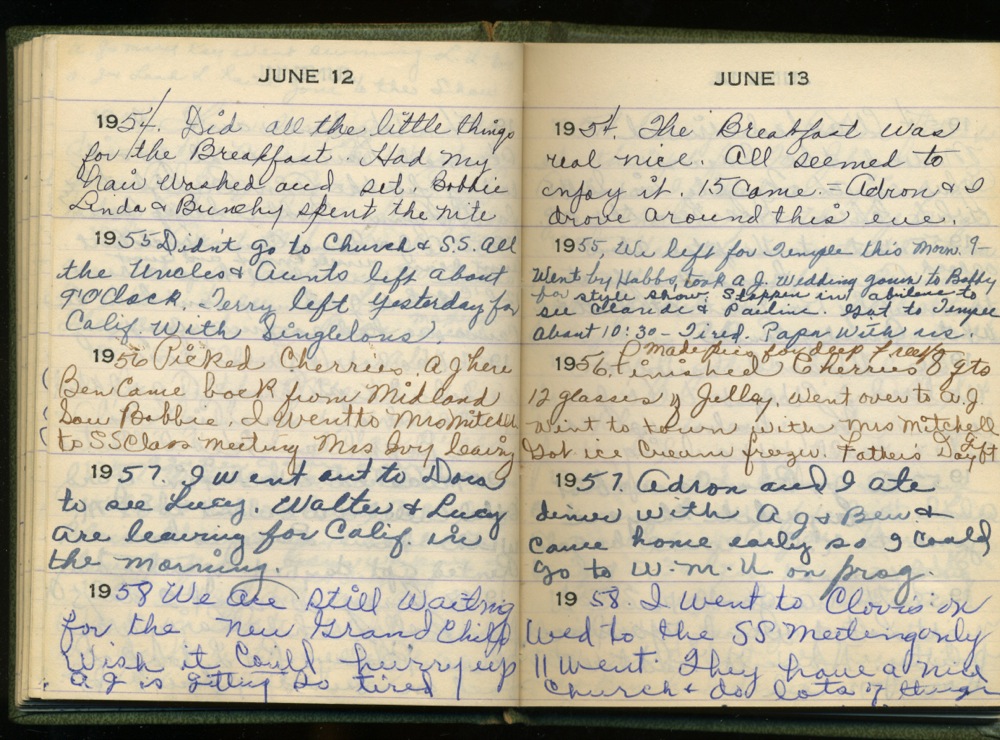 JUNE 12
1954. Did all the little things
for the Breakfast. Had my
hair washed and set. Bobbie
Linda & Bunchy spent the nite
1955 Didn't go to Church & SS. All
the Uncles & Aunts left about
9 O'Clock. Terry left yesterday for
Calif. With Singletons.
1956 Picked Cherries. A J here
Ben Came back from Midland
Saw Bobbie. I went to Mrs Mitchell
to SS Class meeting Mrs Ivy leaving
1957. I went out to Docs
to see Lucy. Walter & Lucy
are leaving for Calif. in
the morning.
1958 We are still waiting
for the new Grand Child
Wish it Could hurry up
A J is getting so tired
JUNE 13
1954. The Breakfast was
real nice. All seemed to
enjoy it. 15 Came. = Adron & I
drove around this eve.
1955, We left for Temple this Morn. 9-
Went by Hobbs, took A.J. Wedding gown to Bobby
for style show. Stopped in Abilene to
see Claride & Pauline. Got to Temple
about 10:30 - Tired. Papa with us.
Made pies for deep freeze
1956. Finished Cherries 8 qts
12 glasses of Jelly. Went over to A.J.
Went to town with Mrs Mitchell
Got ice Cream freezer. Father's Day gft
1957. Adron and I ate
dinner with A J & Ben &
came home early so I could
go to W.M.U. on prog.
1958. I went to Clovis on
Wed to the SS Meeting only
11 went. They have a nice
Church & do lots of things